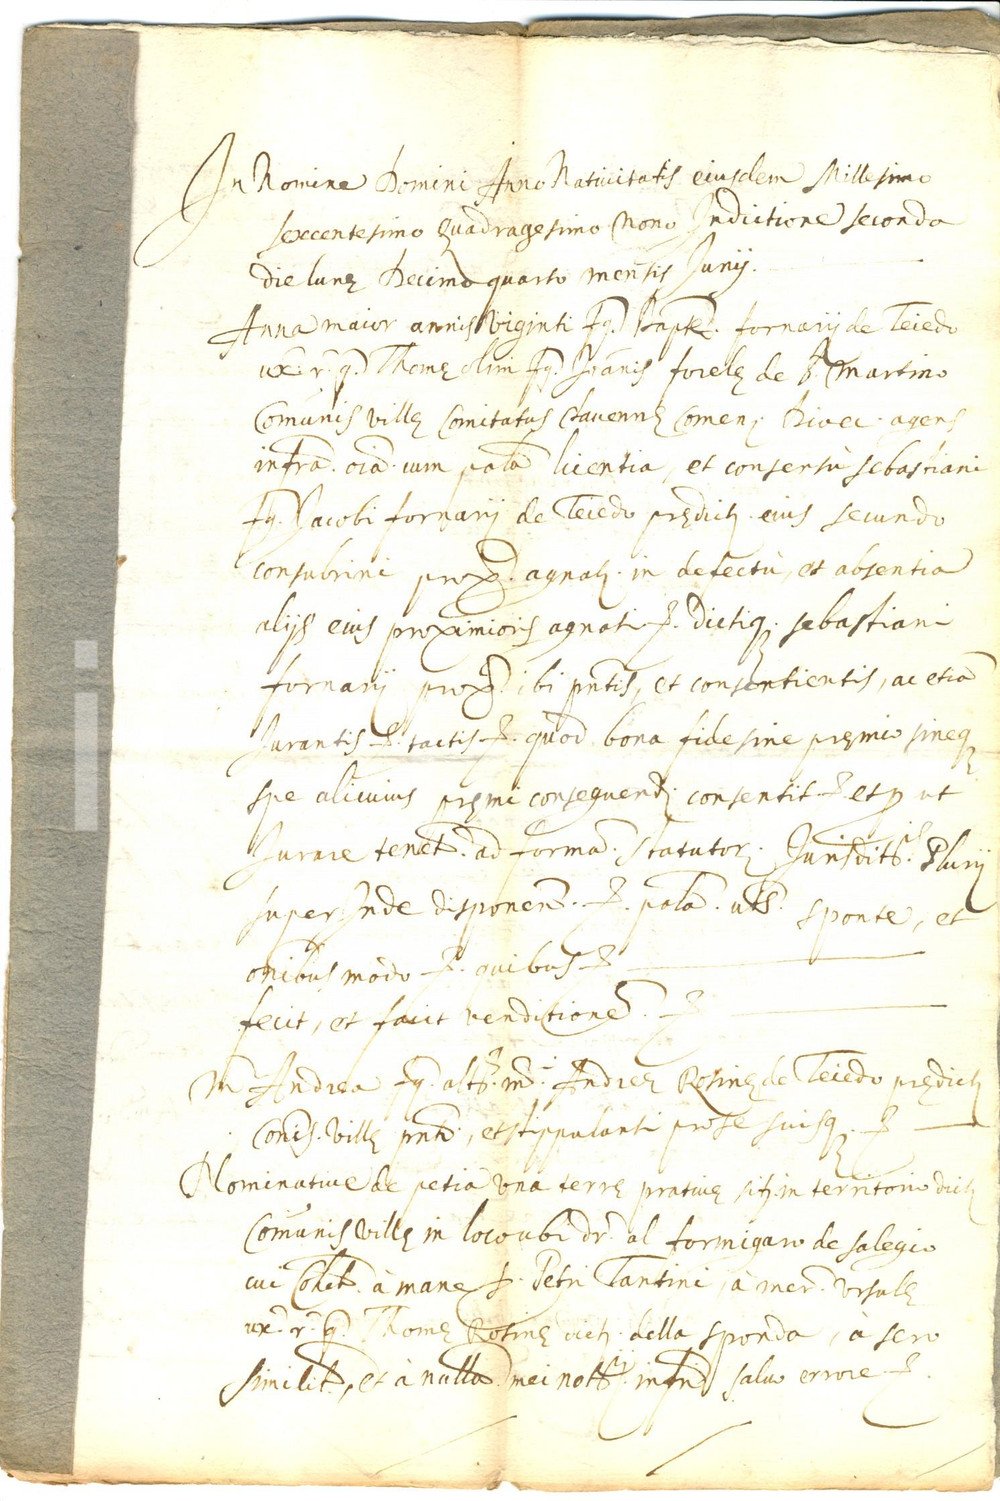 In Nomine Domini Anno Nativitatis eiusdem Millesimo
sexcentesimo quadragesimo nono Indictione seconda
die lunę Decimo quarto mensis Junij.
Anna maior annis viginti fq. Baptę. fornarij de Teiedo
ux. r. q. Thomę olim fq. Joānis forelę de S. Martino
Comunis villę Comitatus Clavennę Comen. Diocc. agens
infra. oīa. cum pāla licentia, et consensù sebastiani
fq. Jacobi fornarij de Teiedo prędicti. eius secundo
consubrini prox. agnati. in defectù, et absentia
alijs eius proximioris agnati. dictiq. sebastiani
fornarij prox. ibi pntis, et consentientis, ac etiā
Jurantis. tactis. quod bona fide sine pręmio sineq
spe alicuius pręmi consequendi consentit. et p ut
Jurare tenet. ad formā. statutor. Jurisdits. Plurij
super Inde disponen. palā. uts. sponte, et
onibus modo. quibus
fecit, et facit venditionē.
M Andrea fq. alt. m. Andreę Rosinę de Teiedo prędicti
Cōnis. villę pntē, et stippulanti pro se suisq.
Nominative de petia una terrę prative sit. in territorio dicti
Comunis villę in loco ubi dr. al formigaro de salegio
cui Cohēt. à mane. Petri Tantini, à mer. Ursulę
ux. r. q. Thomę Rosinę dicti. della sponda, à sero
similit., et à nulla. mei nott. infrā salvo errore.
i